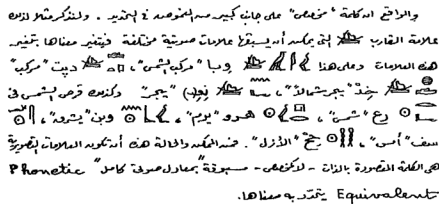 والواقع أن كلمة "مخصص" على جانب كبير من الغموض في التحديد . ولنذكر مثلا لذلك
علامة القارب التي يمكن أن يسبقها علامات صوتية مختلفة فيتغير معناها بتغير
هذه العلامات وعلى هذا وبا "مركب الشمس" ، دپت "مركب"
خد "يبحر شمالا" ، "يبحر" وكذلك قرص الشمس في
رع "شمس" ، هرو "يوم" ، وبن "يشرق" ،
سف "أمس" ، "الأزل" . فمن الممكن والحالة هذه أن تكون العلامات التصويرية
هي الكلمة المقصودة بالذات - لا كمخصص - مسبوقة "بمعادل صوتي كامل" Phonetic
Equivalent يتحدد به معناها .